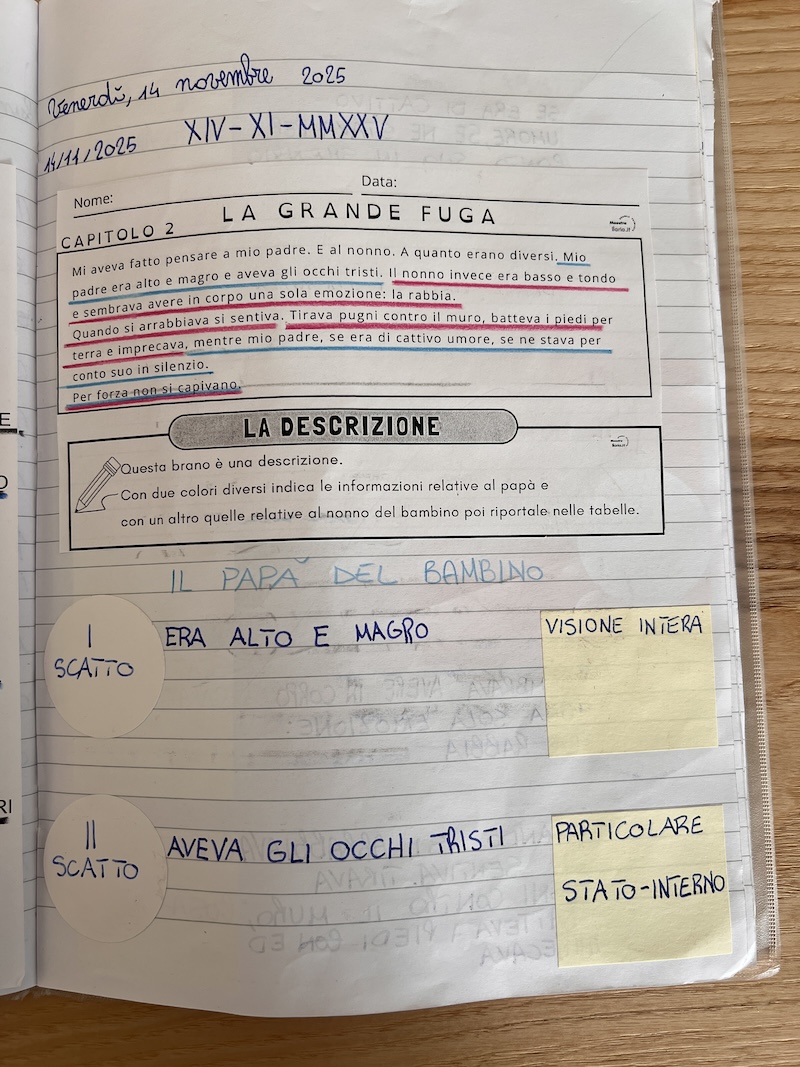 Venerdì, 14 novembre 2025
14/11/2025 XIV-XI-MMXXV
Nome: Data:
CAPITOLO 2 LA GRANDE FUGA
Mi aveva fatto pensare a mio padre. E al nonno. A quanto erano diversi. Mio
padre era alto e magro e aveva gli occhi tristi. Il nonno invece era basso e tondo
e sembrava avere in corpo una sola emozione: la rabbia.
Quando si arrabbiava si sentiva. Tirava pugni contro il muro, batteva i piedi per
terra e imprecava, mentre mio padre, se era di cattivo umore, se ne stava per
conto suo in silenzio.
Per forza non si capivano.
LA DESCRIZIONE
Questa brano è una descrizione.
Con due colori diversi indica le informazioni relative al papà e
con un altro quelle relative al nonno del bambino poi riportale nelle tabelle.
IL PAPÀ DEL BAMBINO
I
SCATTO
ERA ALTO E MAGRO
VISIONE INTERA
II
SCATTO
AVEVA GLI OCCHI TRISTI
PARTICOLARE
STATO-INTERNO